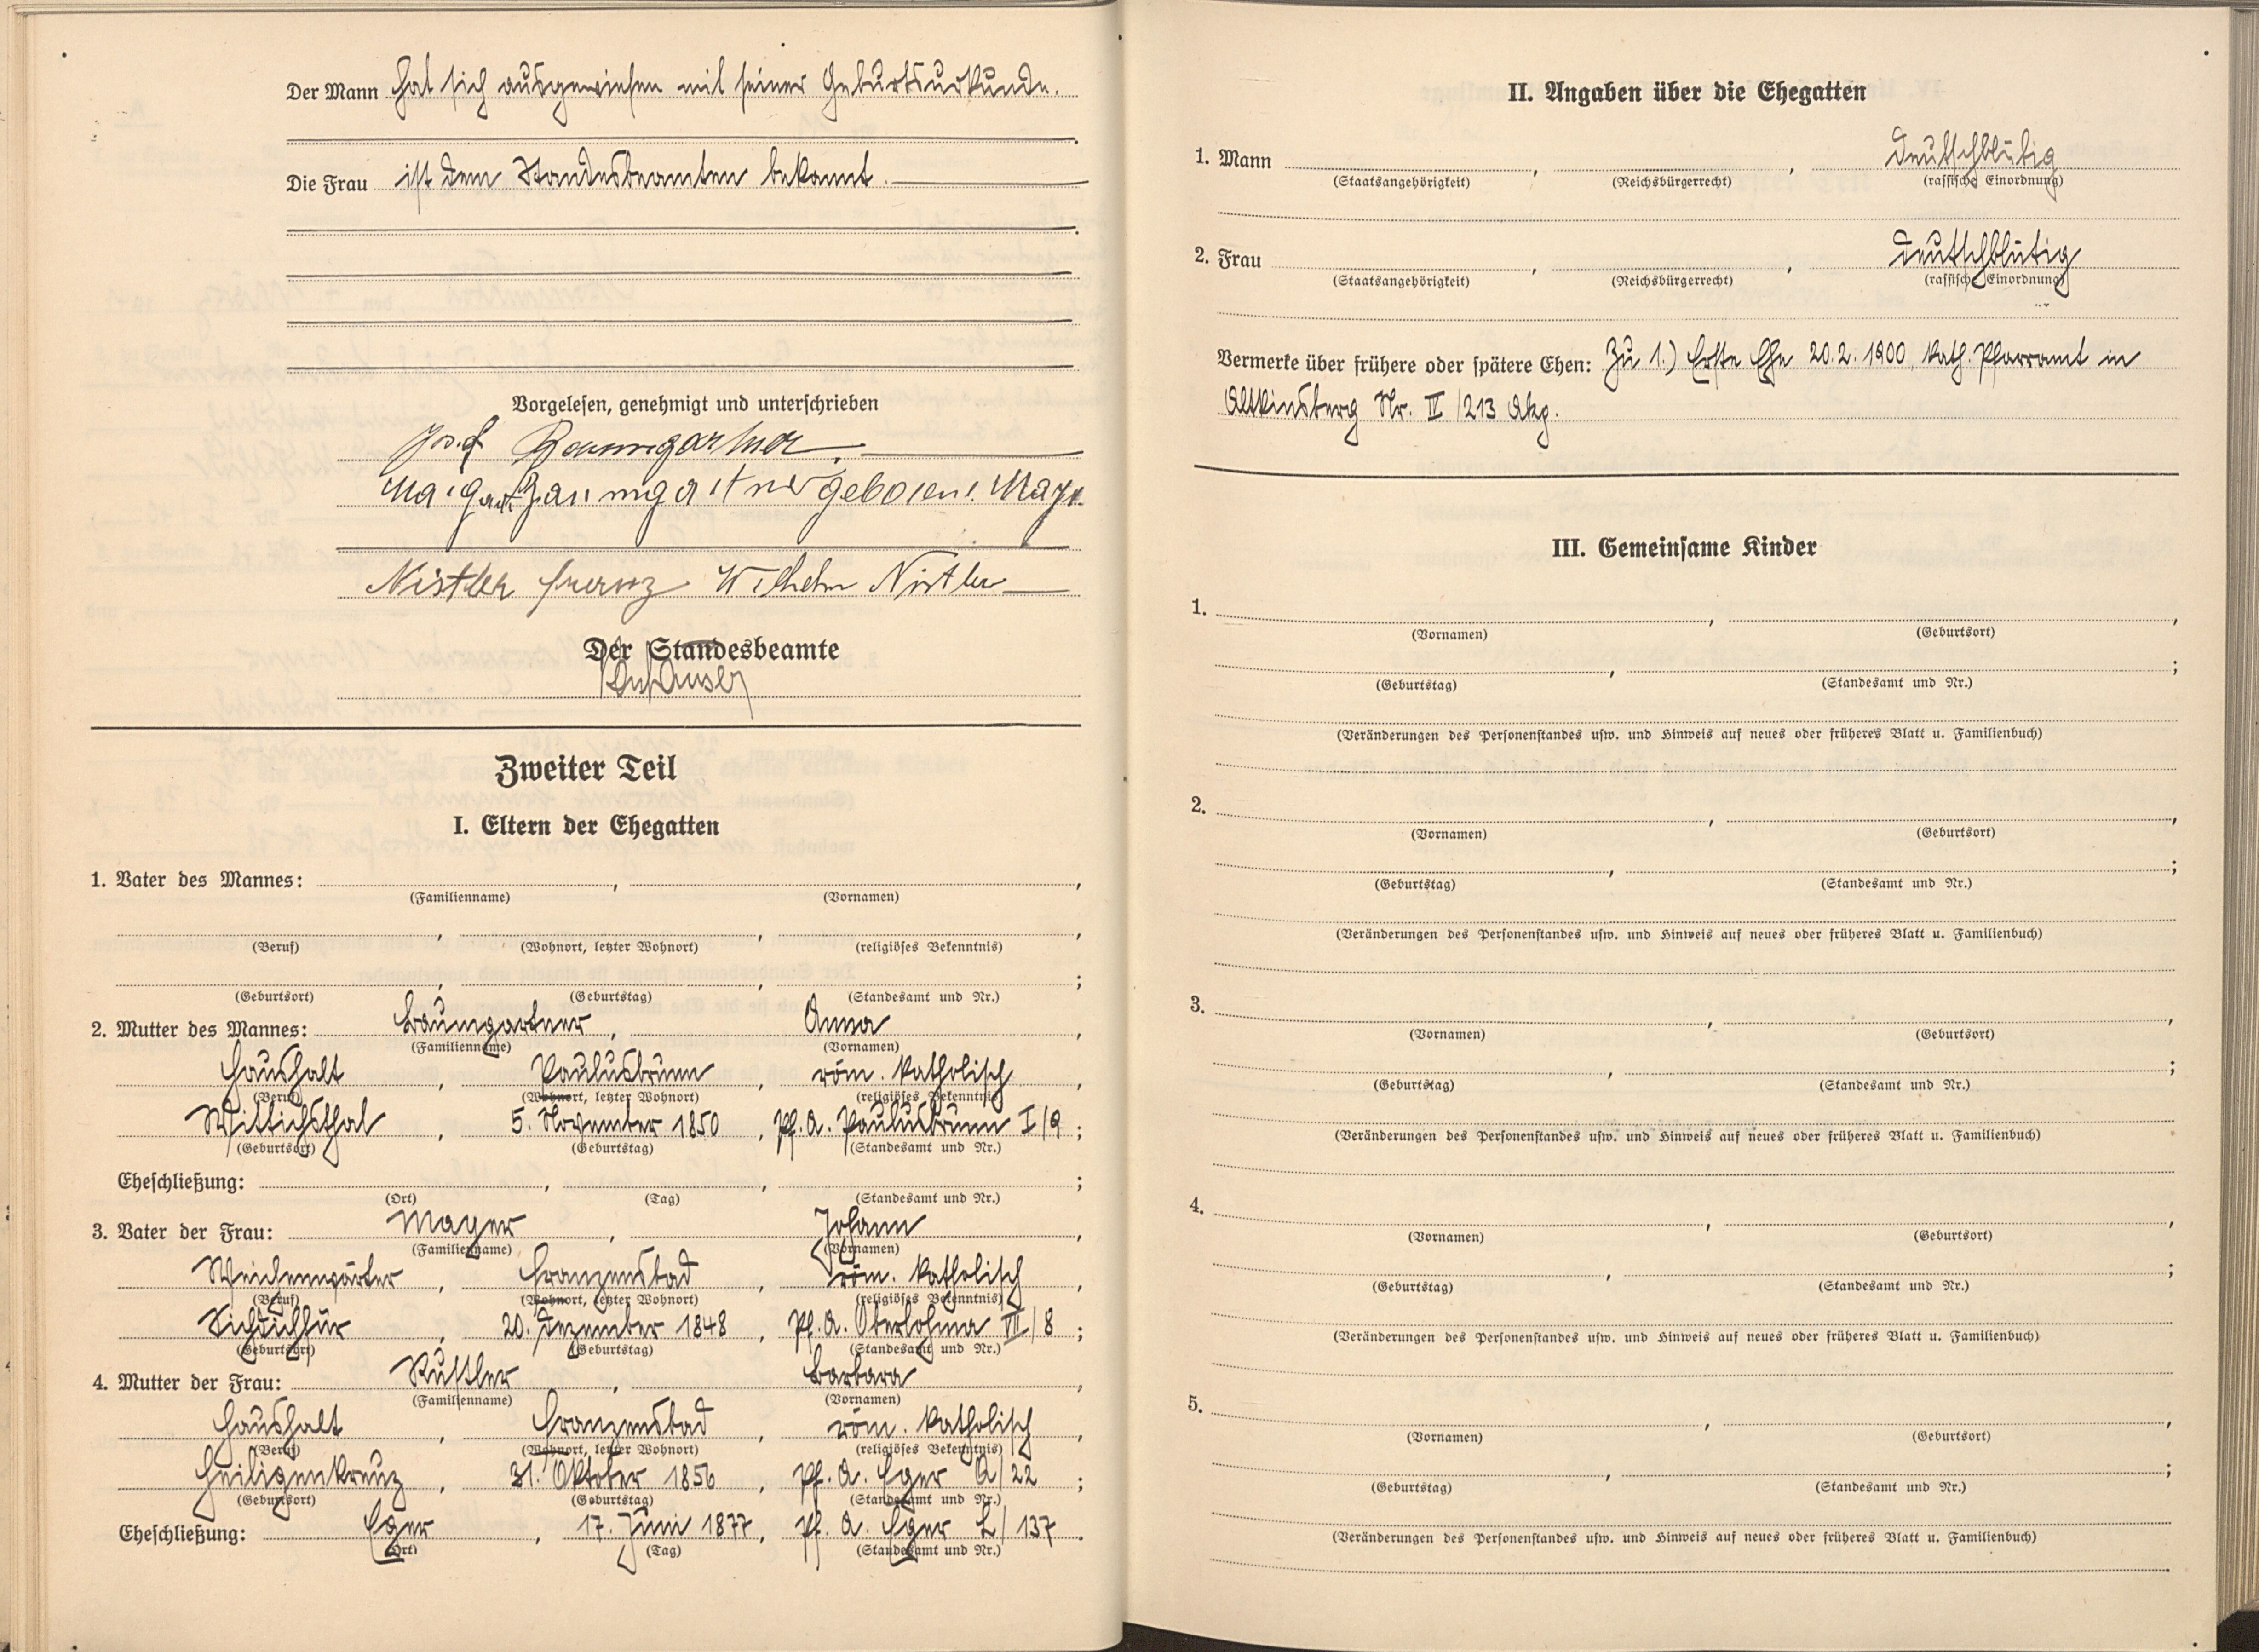 Der Mann hat sich ausgewiesen mit seiner Geburtsurkunde.
Die Frau ist dem Standesbeamten bekannt.
Vorgelesen, genehmigt und unterschrieben
Josef Baumgartner
Margart Baumgartner geborene Maye
Nistler Franz Wilhelm Nistler
Der Standesbeamte
Zweiter Teil
I. Eltern der Ehegatten
1. Vater des Mannes: , ,
(Familienname) (Vornamen)
, , ,
(Beruf) (Wohnort, letzter Wohnort) (religiöses Bekenntnis)
, , ;
(Geburtsort) (Geburtstag) (Standesamt und Nr.)
2. Mutter des Mannes: Baumgartner , Anna ,
(Familienname) (Vornamen)
Haushalt , Paulusbrunn , röm. katholisch ,
(Beruf) (Wohnort, letzter Wohnort) (religiöses Bekenntnis)
Wittichsthal , 5. November 1850 , Pf. A. Paulusbrunn I/9 ;
(Geburtsort) (Geburtstag) (Standesamt und Nr.)
Eheschließung: , , ;
(Ort) (Tag) (Standesamt und Nr.)
3. Vater der Frau: Mayer , Johann ,
(Familienname) (Vornamen)
Weichenwärter , Franzensbad , röm. katholisch ,
(Beruf) (Wohnort, letzter Wohnort) (religiöses Bekenntnis)
Sichdichfür , 20. Dezember 1848 , Pf. A. Oberlohma VII/8 ;
(Geburtsort) (Geburtstag) (Standesamt und Nr.)
4. Mutter der Frau: Rustler , Barbara ,
(Familienname) (Vornamen)
Haushalt , Franzensbad , röm. katholisch ,
(Beruf) (Wohnort, letzter Wohnort) (religiöses Bekenntnis)
Heiligenkreuz , 31. Oktober 1856 , Pf. A. Eger A/22 ;
(Geburtsort) (Geburtstag) (Standesamt und Nr.)
Eheschließung: Eger , 17. Juni 1877 , Pf. A. Eger L/137 .
(Ort) (Tag) (Standesamt und Nr.)
II. Angaben über die Ehegatten
1. Mann , , deutschblütig
(Staatsangehörigkeit) (Reichsbürgerrecht) (rassische Einordnung)
2. Frau , , deutschblütig
(Staatsangehörigkeit) (Reichsbürgerrecht) (rassische Einordnung)
Vermerke über frühere oder spätere Ehen: Zu 1.) Erste Ehe 20.2.1900, kath. Pfarramt in
Altkinsberg Nr. II/213 Akg.
III. Gemeinsame Kinder
1. , ,
(Vornamen) (Geburtsort)
, ;
(Geburtstag) (Standesamt und Nr.)
(Veränderungen des Personenstandes usw. und Hinweis auf neues oder früheres Blatt u. Familienbuch)
2. , ,
(Vornamen) (Geburtsort)
, ;
(Geburtstag) (Standesamt und Nr.)
(Veränderungen des Personenstandes usw. und Hinweis auf neues oder früheres Blatt u. Familienbuch)
3. , ,
(Vornamen) (Geburtsort)
, ;
(Geburtstag) (Standesamt und Nr.)
(Veränderungen des Personenstandes usw. und Hinweis auf neues oder früheres Blatt u. Familienbuch)
4. , ,
(Vornamen) (Geburtsort)
, ;
(Geburtstag) (Standesamt und Nr.)
(Veränderungen des Personenstandes usw. und Hinweis auf neues oder früheres Blatt u. Familienbuch)
5. , ,
(Vornamen) (Geburtsort)
, ;
(Geburtstag) (Standesamt und Nr.)
(Veränderungen des Personenstandes usw. und Hinweis auf neues oder früheres Blatt u. Familienbuch)